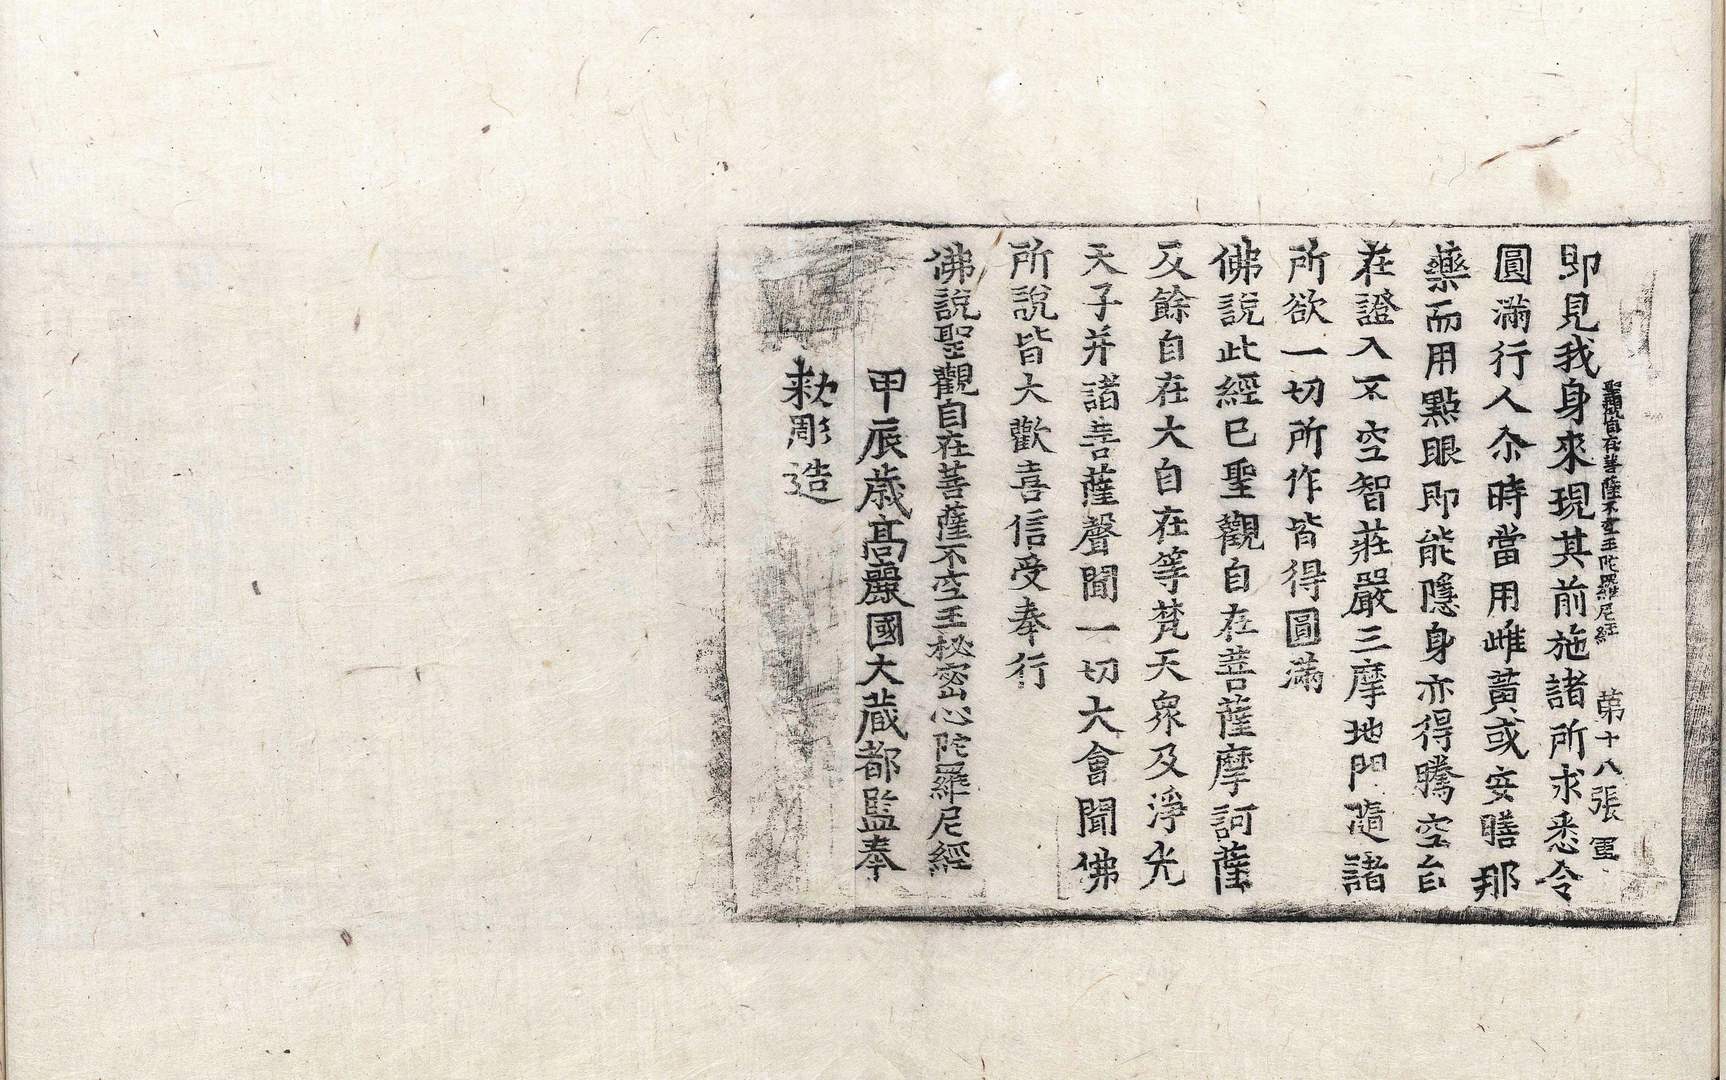 聖觀自在菩薩不空王陁羅尼經 第十八張 軍
即見我身來現其前施諸所求悉令
圓滿行人尒時當用雌黃或安膳那
藥而用點眼即能隱身亦得騰空自
在證入不空智莊嚴三摩地門隨諸
所欲一切所作皆得圓滿
佛說此經已聖觀自在菩薩摩訶薩
及餘自在大自在等梵天衆及淨光
天子并諸菩薩聲聞一切大會聞佛
所說皆大歡喜信受奉行
佛說聖觀自在菩薩不空王秘密心陁羅尼經
甲辰歲高麗國大藏都監奉
勑彫造